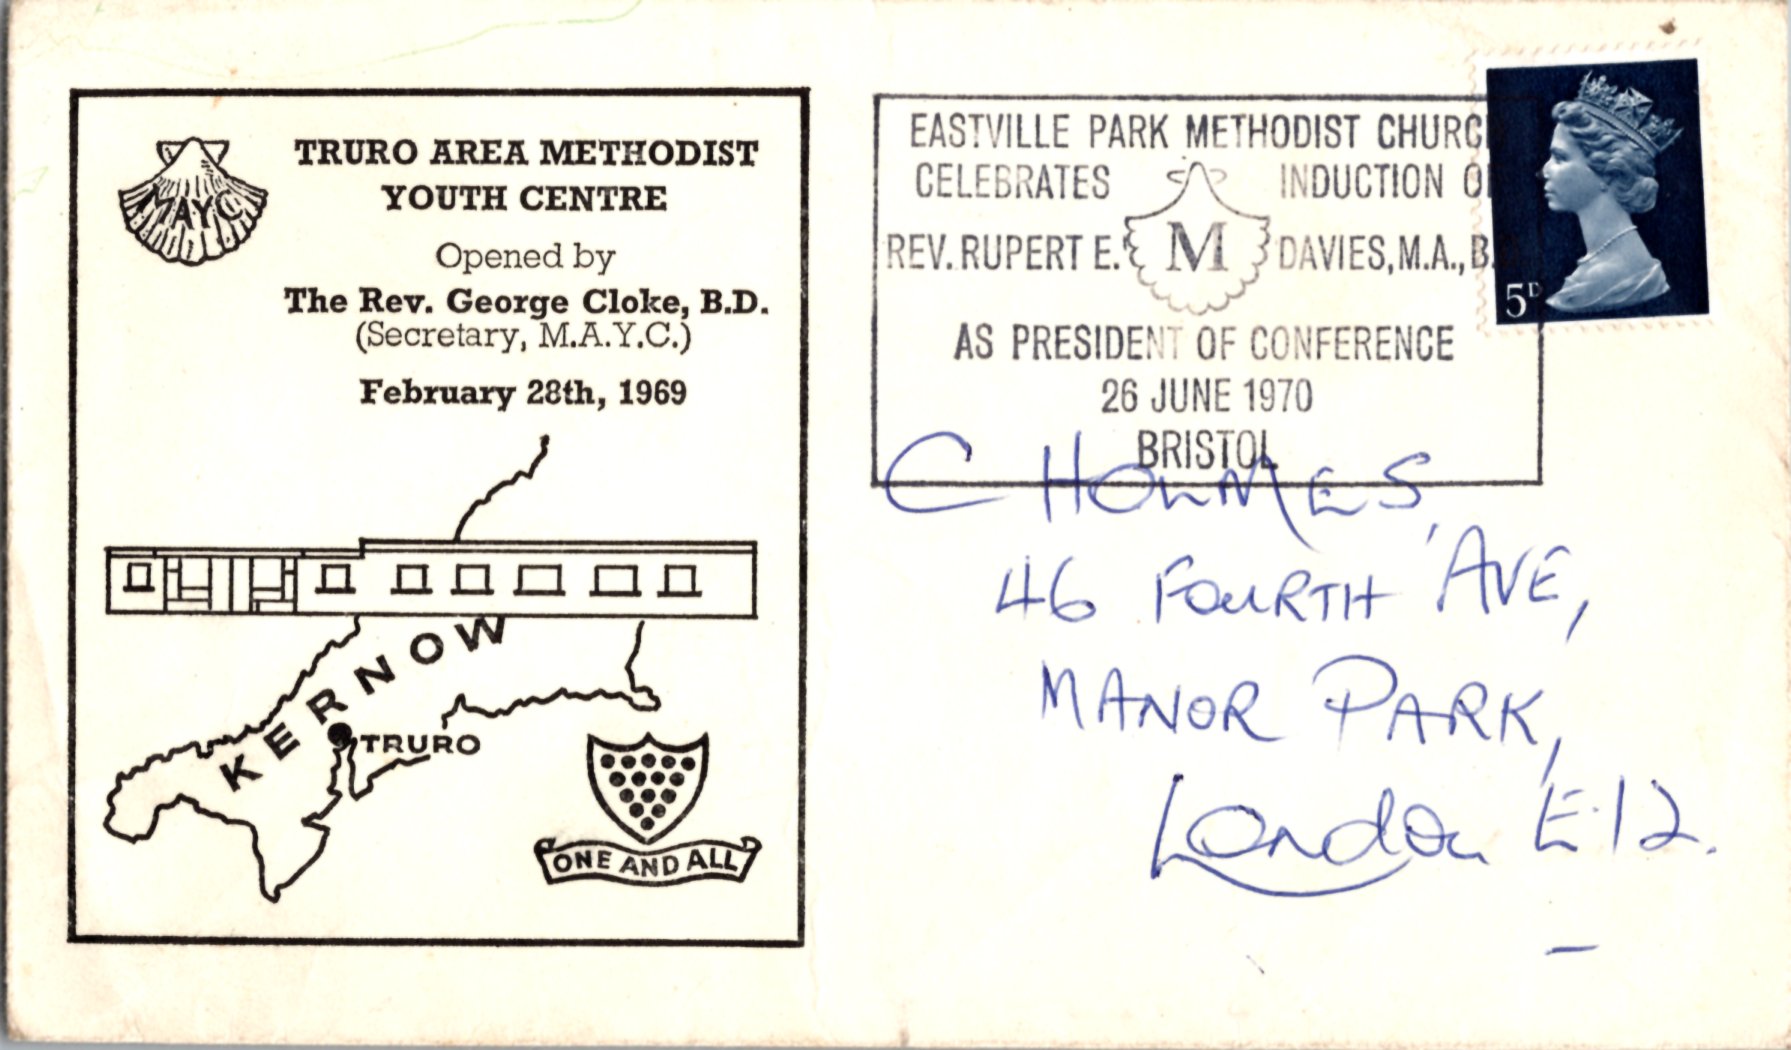 MAYC
TRURO AREA METHODIST
YOUTH CENTRE
Opened by
The Rev. George Cloke, B.D.
(Secretary, M.A.Y.C.)
February 28th, 1969
KERNOW
TRURO
ONE AND ALL
EASTVILLE PARK METHODIST CHURC
CELEBRATES INDUCTION O
REV. RUPERT E. M DAVIES, M.A., B.
AS PRESIDENT OF CONFERENCE
26 JUNE 1970
BRISTOL
5D
C HOLMES,
46 FOURTH AVE,
MANOR PARK,
London E.12.